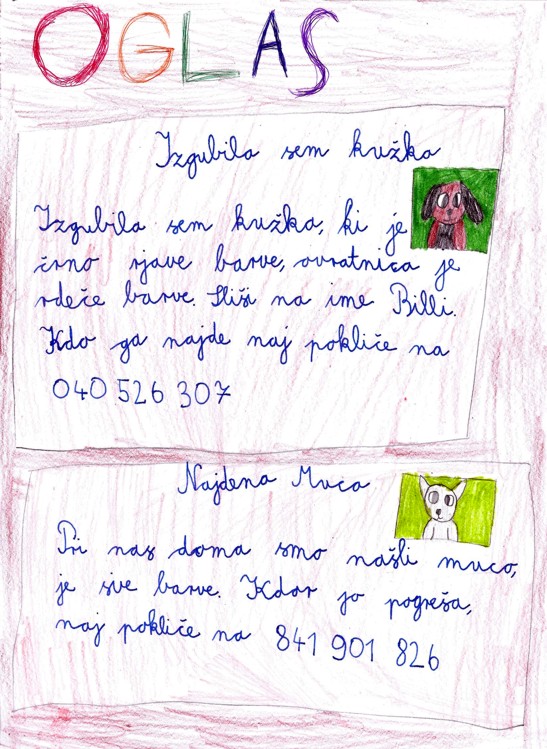 OGLAS
Izgubila sem kužka
Izgubila sem kužka, ki je
črno rjave barve, ovratnica je
rdeče barve. Sliši na ime Billi.
Kdo ga najde naj pokliče na
040 526 307
Najdena Muca
Pri nas doma smo našli muco,
je sive barve. Kdor jo pogreša,
naj pokliče na 841 901 826